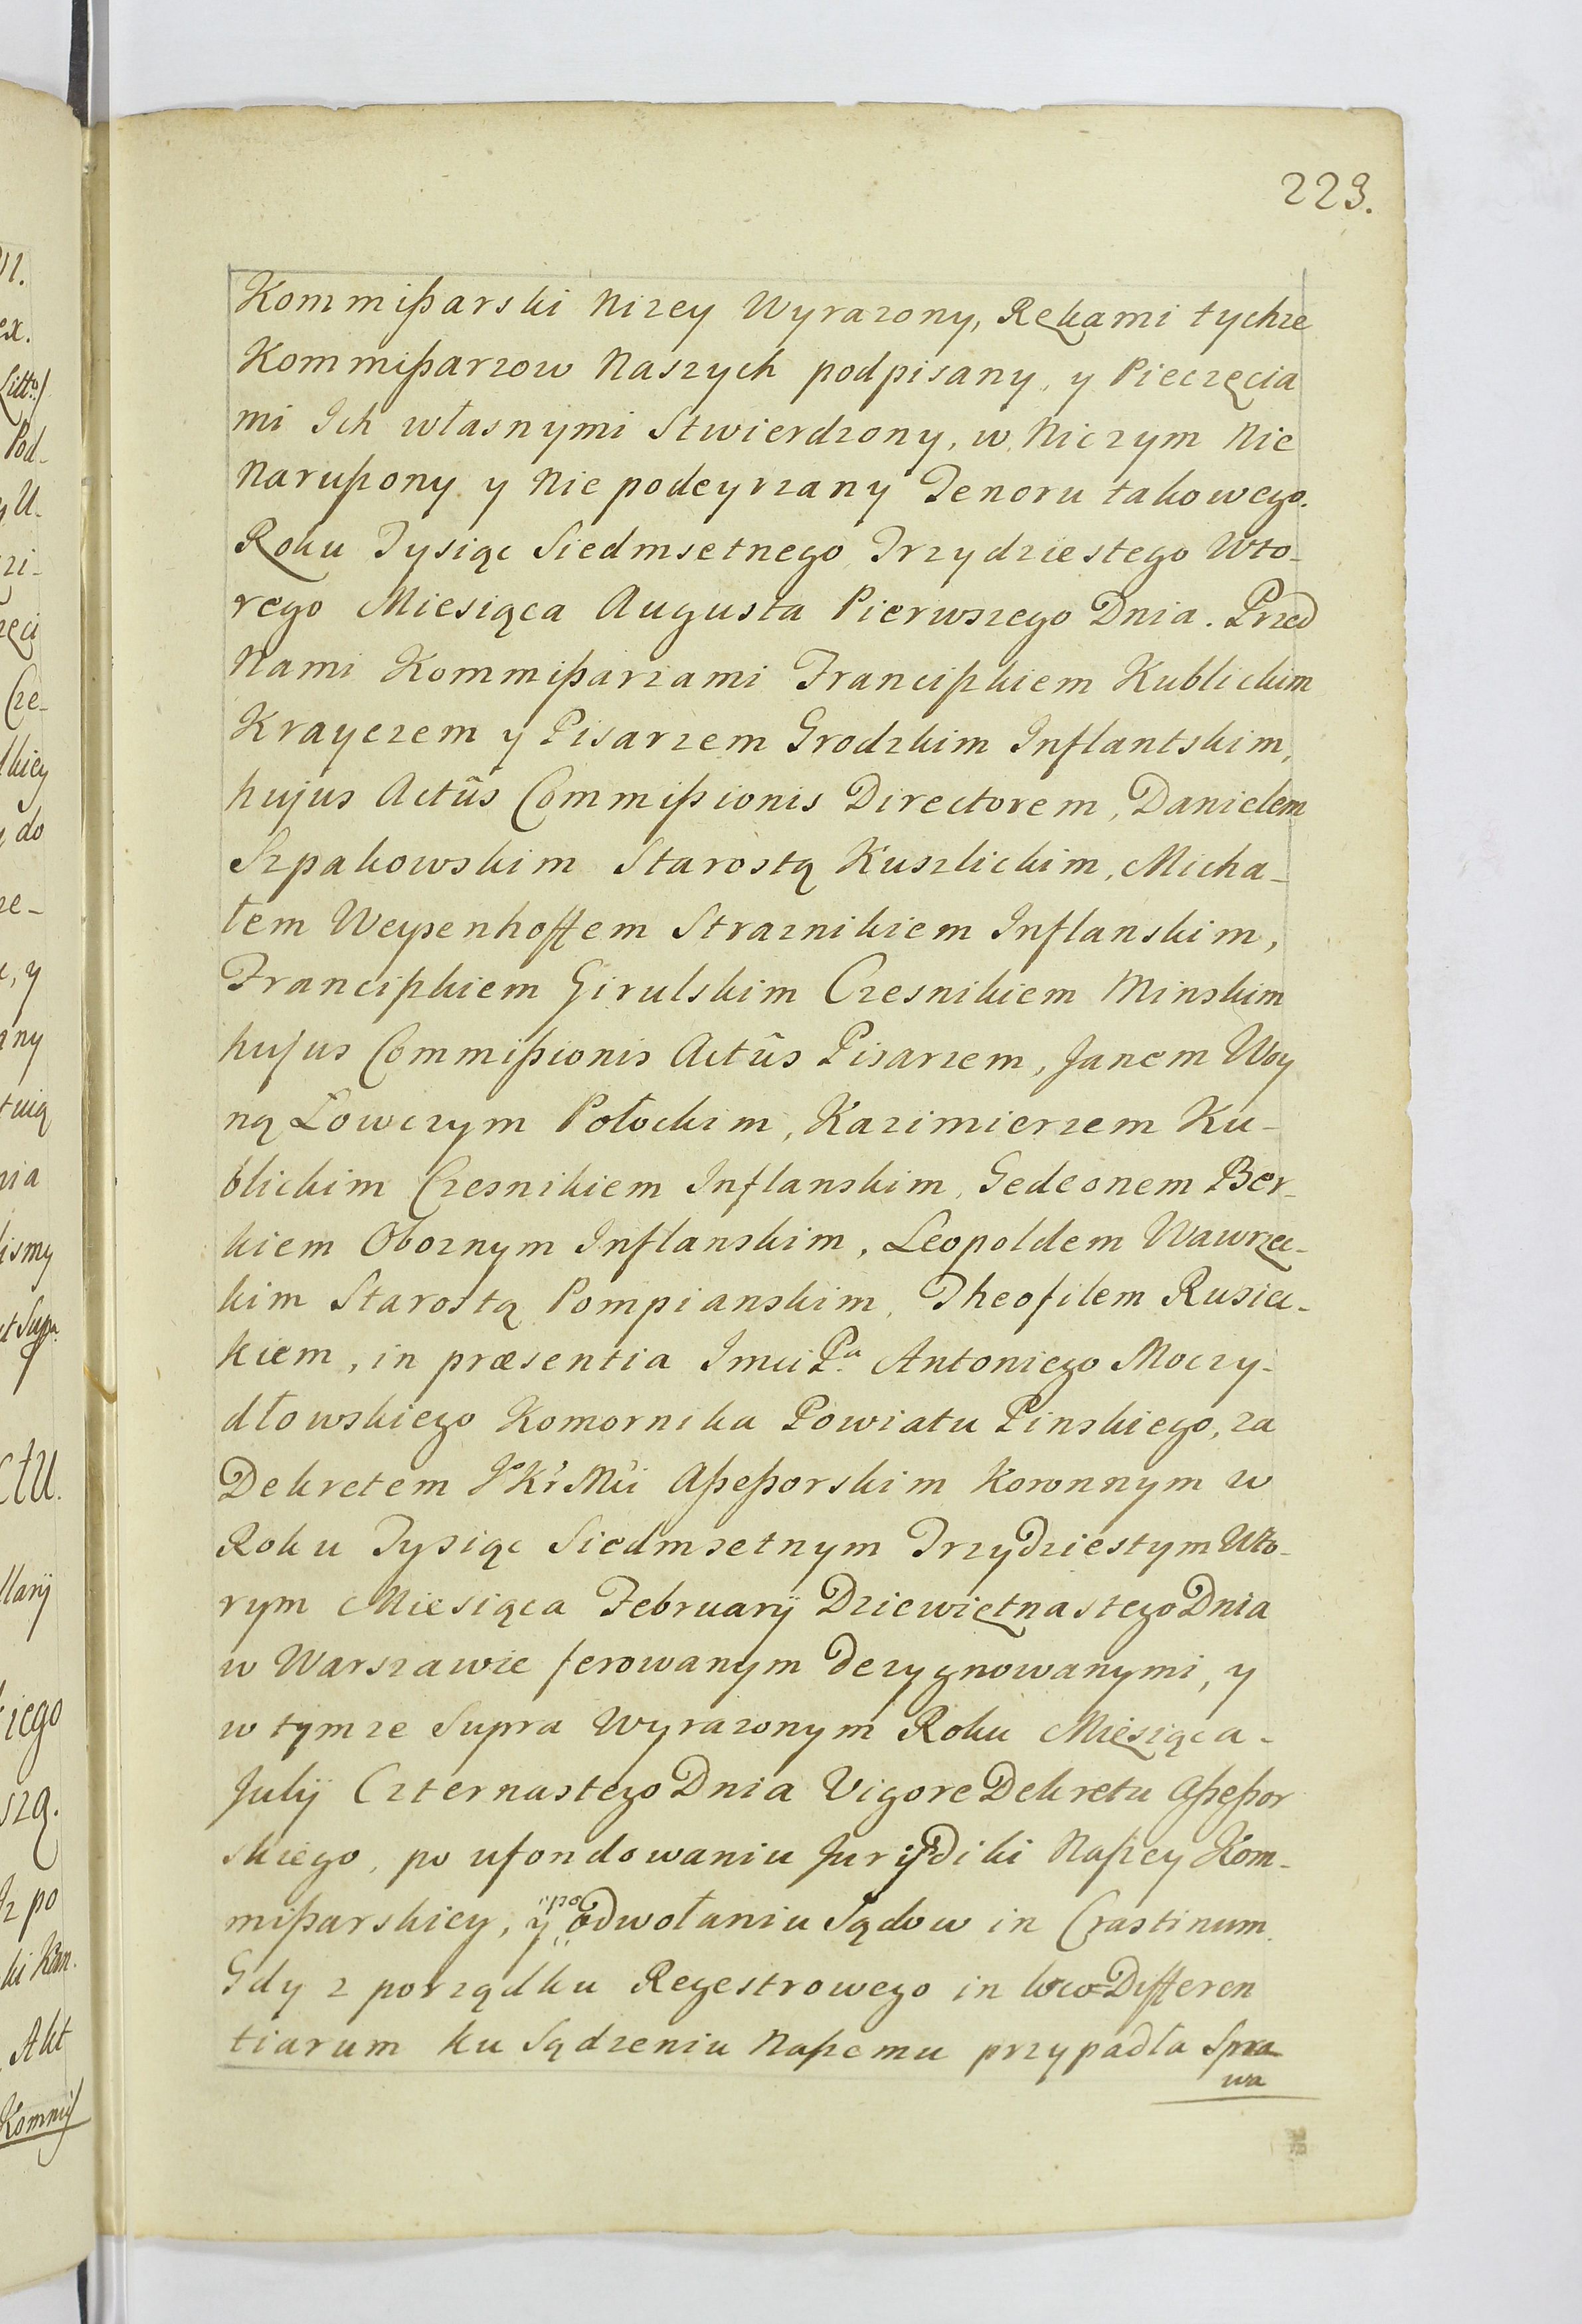 223.
Kommißarski Nizey Wyrazony, Rękami tychze
Kommißarzow Naszych podpisany, y Pieczęcia
mi Ich własnymi Stwierdzony, w Niczym Nie
Narußony y Nie podeyrzany Tenoru takowego.
Roku Tysiąc Siedmsetnego Trzydziestego Wto-
rego Miesiąca Augusta Pierwszego Dnia. Przed
Nami Kommißarzami Francißkiem Kublickim
Krayczem y Pisarzem Grodzkim Inflantskim,
hujus Actûs Commißionis Directorem, Danielem
Szpakowskim Starostą Kuszlickim, Micha-
łem Weysenhoffem Straznikiem Inflanskim,
Francißkiem Girulskim Czesnikiem Minskim
hujus Commißionis Actûs Pisarzem, Janem Woy
ną Łowczym Połockim, Kazimierzem Ku-
blickim Czesnikiem Inflanskim, Gedeonem Ber-
kiem Oboznym Inflanskim, Leopoldem Wawrzec-
kim Starostą Pompianskim, Theofilem Rusiec-
kiem, in præsentia Imci Pa Antoniego Moczy-
dłowskiego Komornika Powiatu Pinskiego, za
Dekretem JoKrMci Aßeßorskim Koronnym w
Roku Tysiąc Siedmsetnym Trzydziestym Wto-
rym Miesiąca Februarÿ Dziewiętnastego Dnia
w Warszawie ferowanym dezygnowanymi, y
w tymze Supra Wyrazonym Roku Miesiąca
Julÿ Czternastego Dnia Vigore Dekretu Aßeßor
skiego, po ufondowaniu Juryzdiki Naßey Kom-
mißarskiey, y odwołaniu Sądow in Crastinum.
Gdy z porządku Regestrowego in loco Differen
tiarum ku Sądzeniu Naßemu przypadła Spra
wa